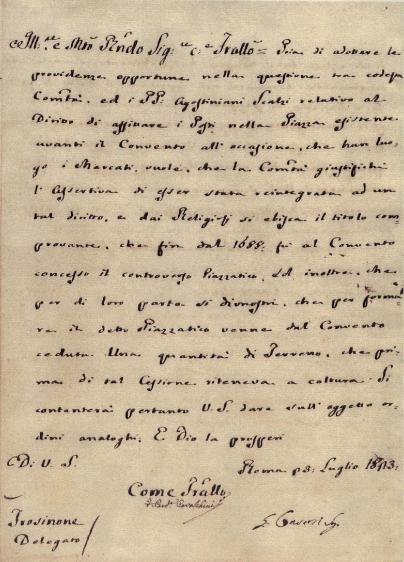 Ill.re e Mto Rndo Sig.re c.e Fratlo = Pria di adottare le
providenze opportune nella questione tra codesta
Comtà, ed i PP. Agostiniani Scalzi relativo al
Diritto di affittare i Posti nella Piazza esistente
avanti il Convento all'occasione, che han luo,
go i Mercati, vuole, che la Comtà giustifichi
l'assertiva di esser stata reintegrata ad un
tal diritto, e dai Religiosi si esibisca il titolo com,
provante, che fin dal 1688: fu al Convento
concesso il controverso Piazzatico, ed inoltre, che
per di loro parte si dimostri, che per forma,
re il detto Piazzatico venne dal Convento
ceduta Una quantità di Terreno, che pri,
ma di tal Cessione riteneva a coltura. Si
contenterà pertanto V. S. dare sull'oggetto or,
dini analoghi; E Dio la prosperi
Di V. S.
Roma p8: Luglio
Come Fratlo
Frosinone
Delegato